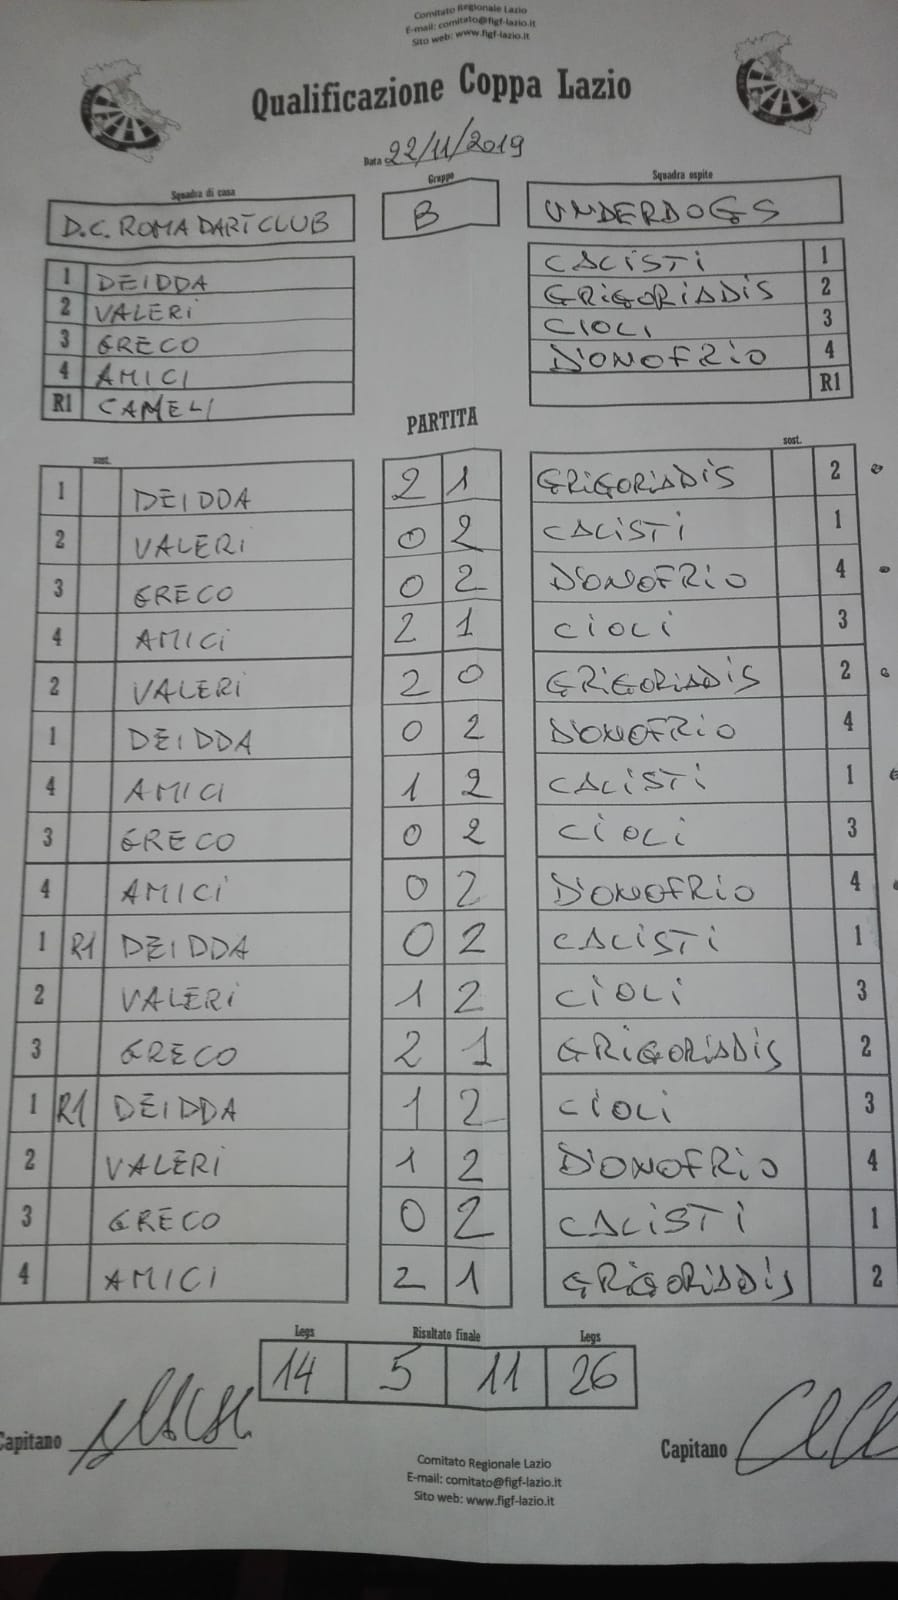 Comitato Regionale Lazio
E-mail: comitato@figf-lazio.it
Sito web: www.figf-lazio.it
Qualificazione Coppa Lazio
Data 22/11/2019
Squadra di casa Gruppo Squadra ospite
D.C. ROMA DART CLUB B UNDERDOGS
1 DEIDDA CALISTI 1
2 VALERI GRIGORIADIS 2
3 GRECO CIOLI 3
4 AMICI D'ONOFRIO 4
R1 CAMELI R1
PARTITA
sost. sost.
1 DEIDDA 2 1 GRIGORIADIS 2
2 VALERI 0 2 CALISTI 1
3 GRECO 0 2 D'ONOFRIO 4
4 AMICI 2 1 CIOLI 3
2 VALERI 2 0 GRIGORIADIS 2
1 DEIDDA 0 2 D'ONOFRIO 4
4 AMICI 1 2 CALISTI 1
3 GRECO 0 2 CIOLI 3
4 AMICI 0 2 D'ONOFRIO 4
1 R1 DEIDDA 0 2 CALISTI 1
2 VALERI 1 2 CIOLI 3
3 GRECO 2 1 GRIGORIADIS 2
1 R1 DEIDDA 1 2 CIOLI 3
2 VALERI 1 2 D'ONOFRIO 4
3 GRECO 0 2 CALISTI 1
4 AMICI 2 1 GRIGORIADIS 2
Legs Risultato finale Legs
14 5 11 26
Capitano Capitano
Comitato Regionale Lazio
E-mail: comitato@figf-lazio.it
Sito web: www.figf-lazio.it